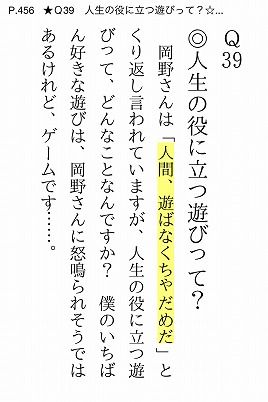 P.456 ★Q39 人生の役に立つ遊びって？☆...
Q39
◎人生の役に立つ遊びって？
岡野さんは「人間、遊ばなくちゃだめだ」と
くり返し言われていますが、人生の役に立つ遊
びって、どんなことなんですか？ 僕のいちば
ん好きな遊びは、岡野さんに怒鳴られそうでは
あるけれど、ゲームです……。